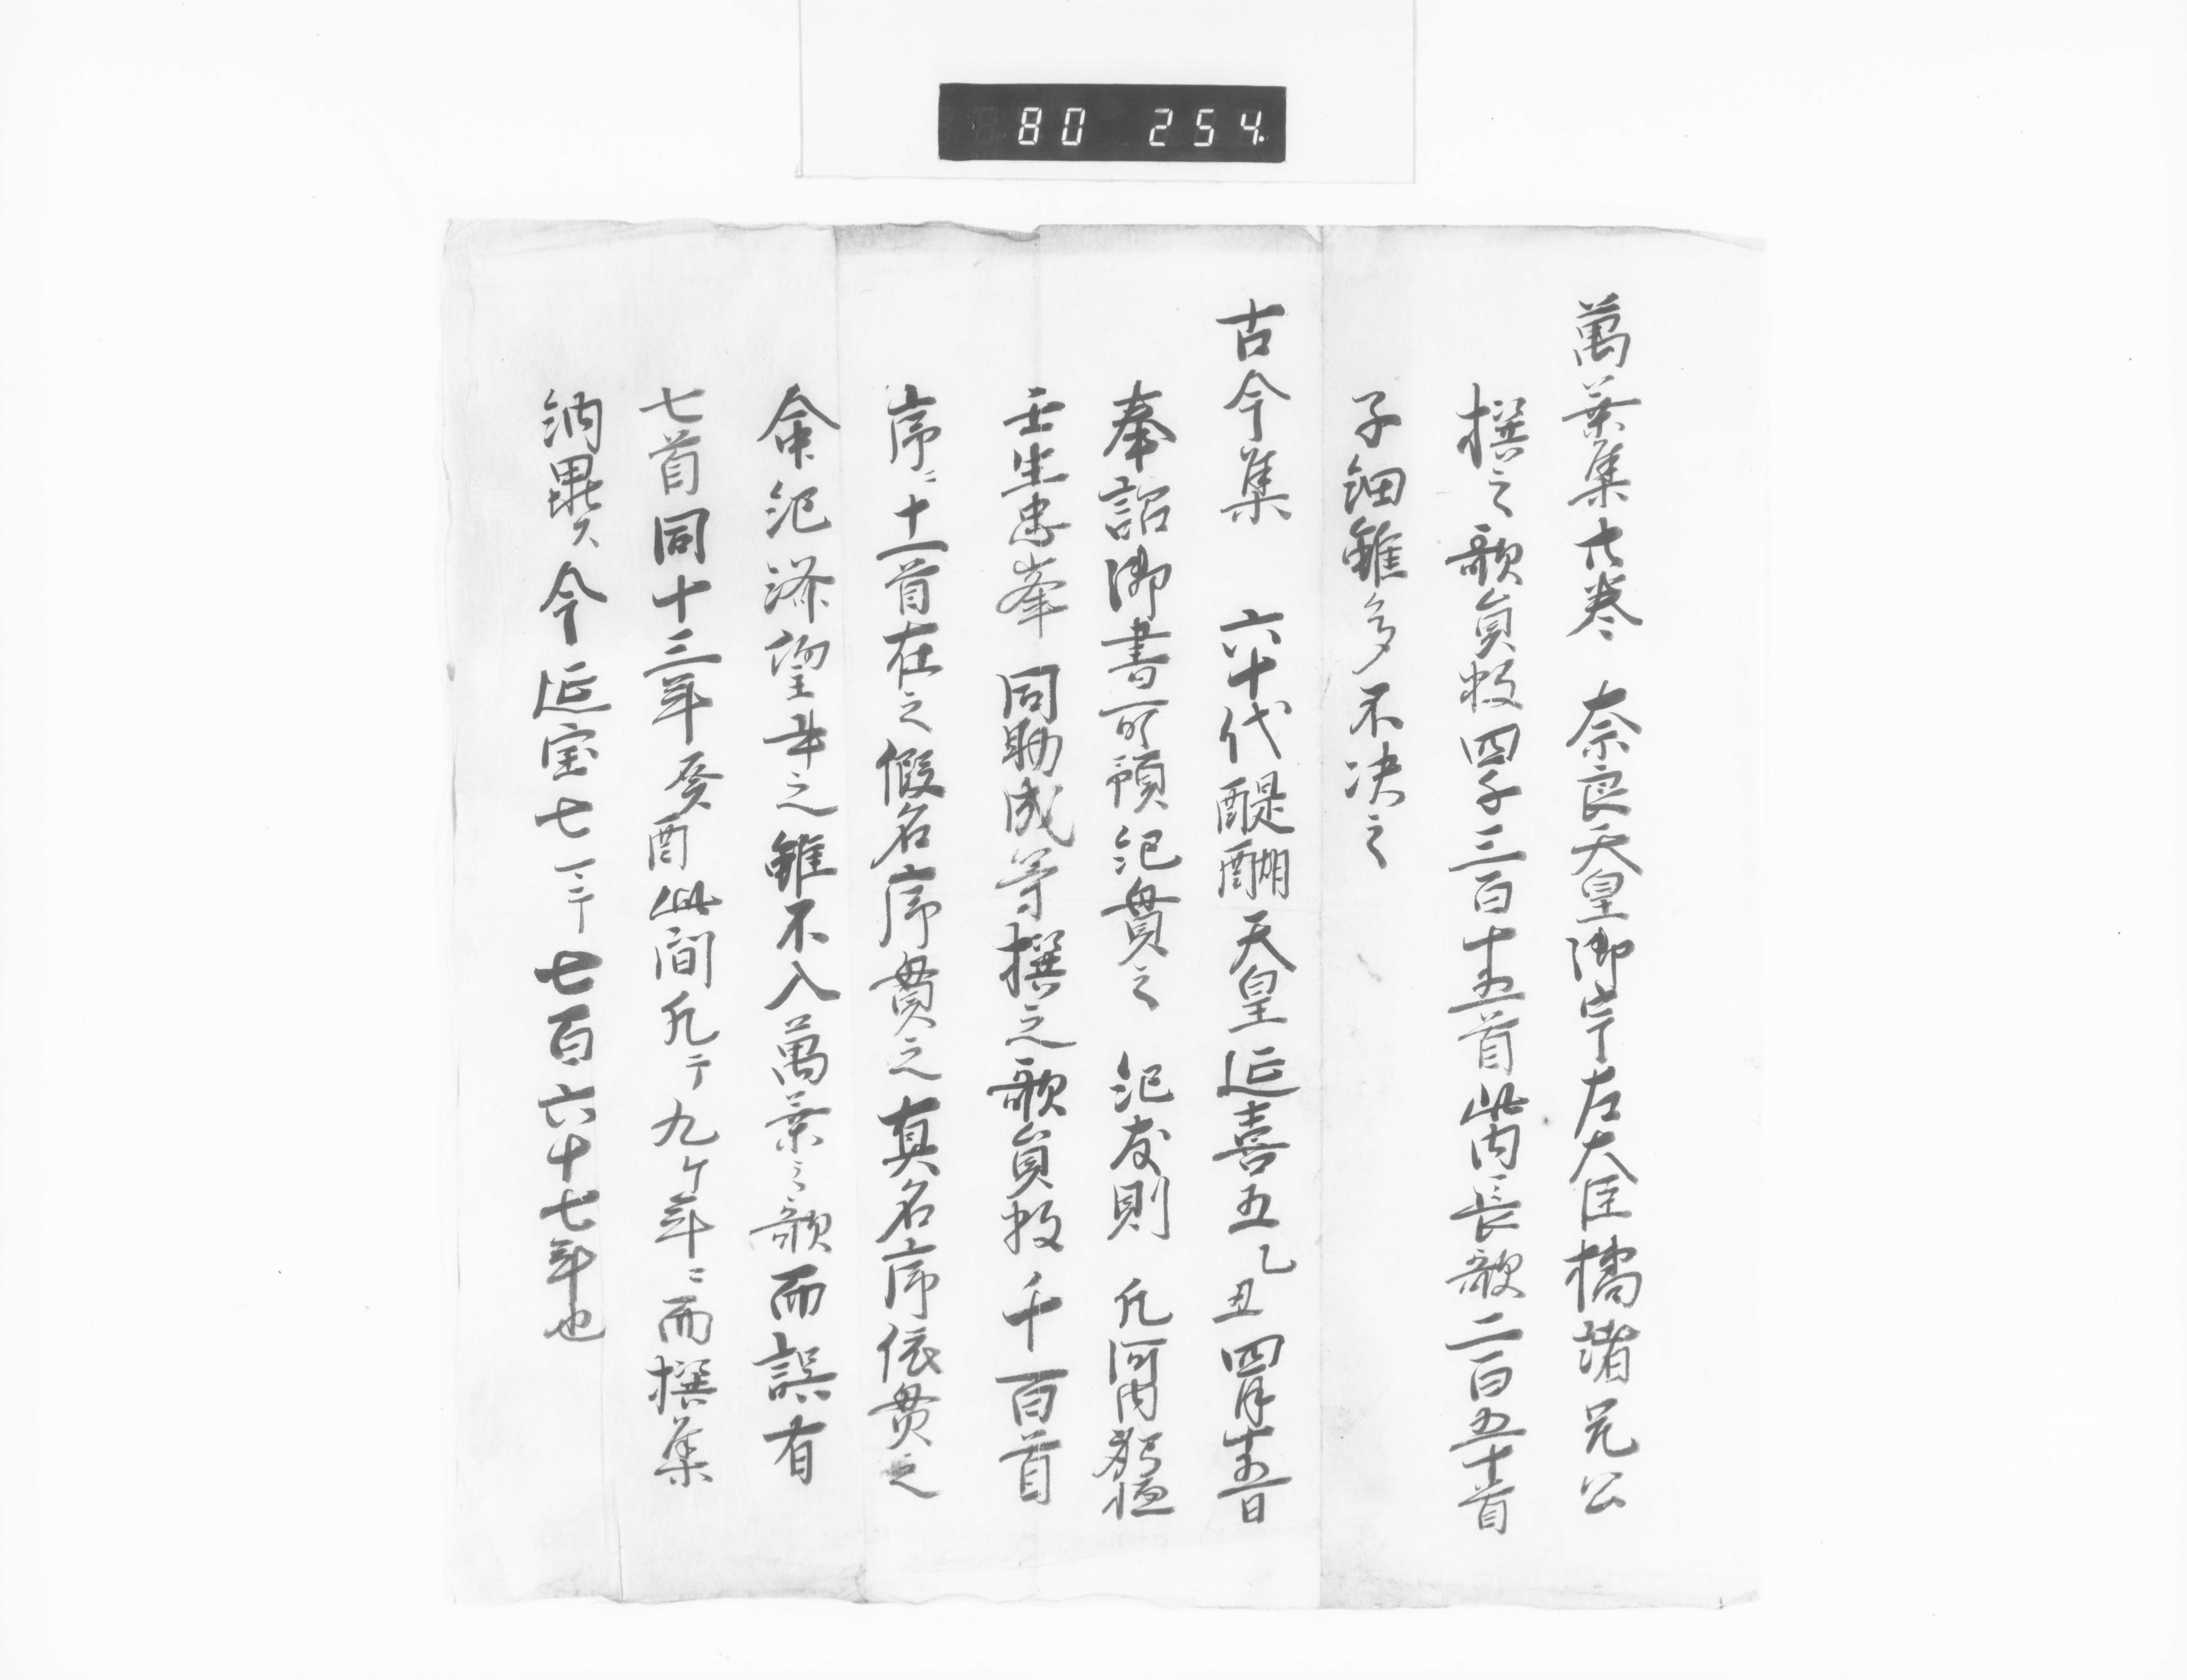 80 254.
萬葉集廿巻 奈良天皇御宇左大臣橘諸兄公
撰之歌員数四千三百十五首此内長歌二百五十首
子細雖多不决之
古今集 六十代醍醐天皇延喜五乙丑四月十五日
奉詔御書所預紀貫之 紀友則 凢河内躬恒
壬生忠峯 同助成等撰之歌員数千百首
序ニ十一首在之假名序貫之真名序依貫之
命紀淑望書之雖不入萬葉之歌而誤有
七首同十三年癸酉此間凢テ九ケ年ニ而撰集
納畢又今延宝七 七百六十七年也